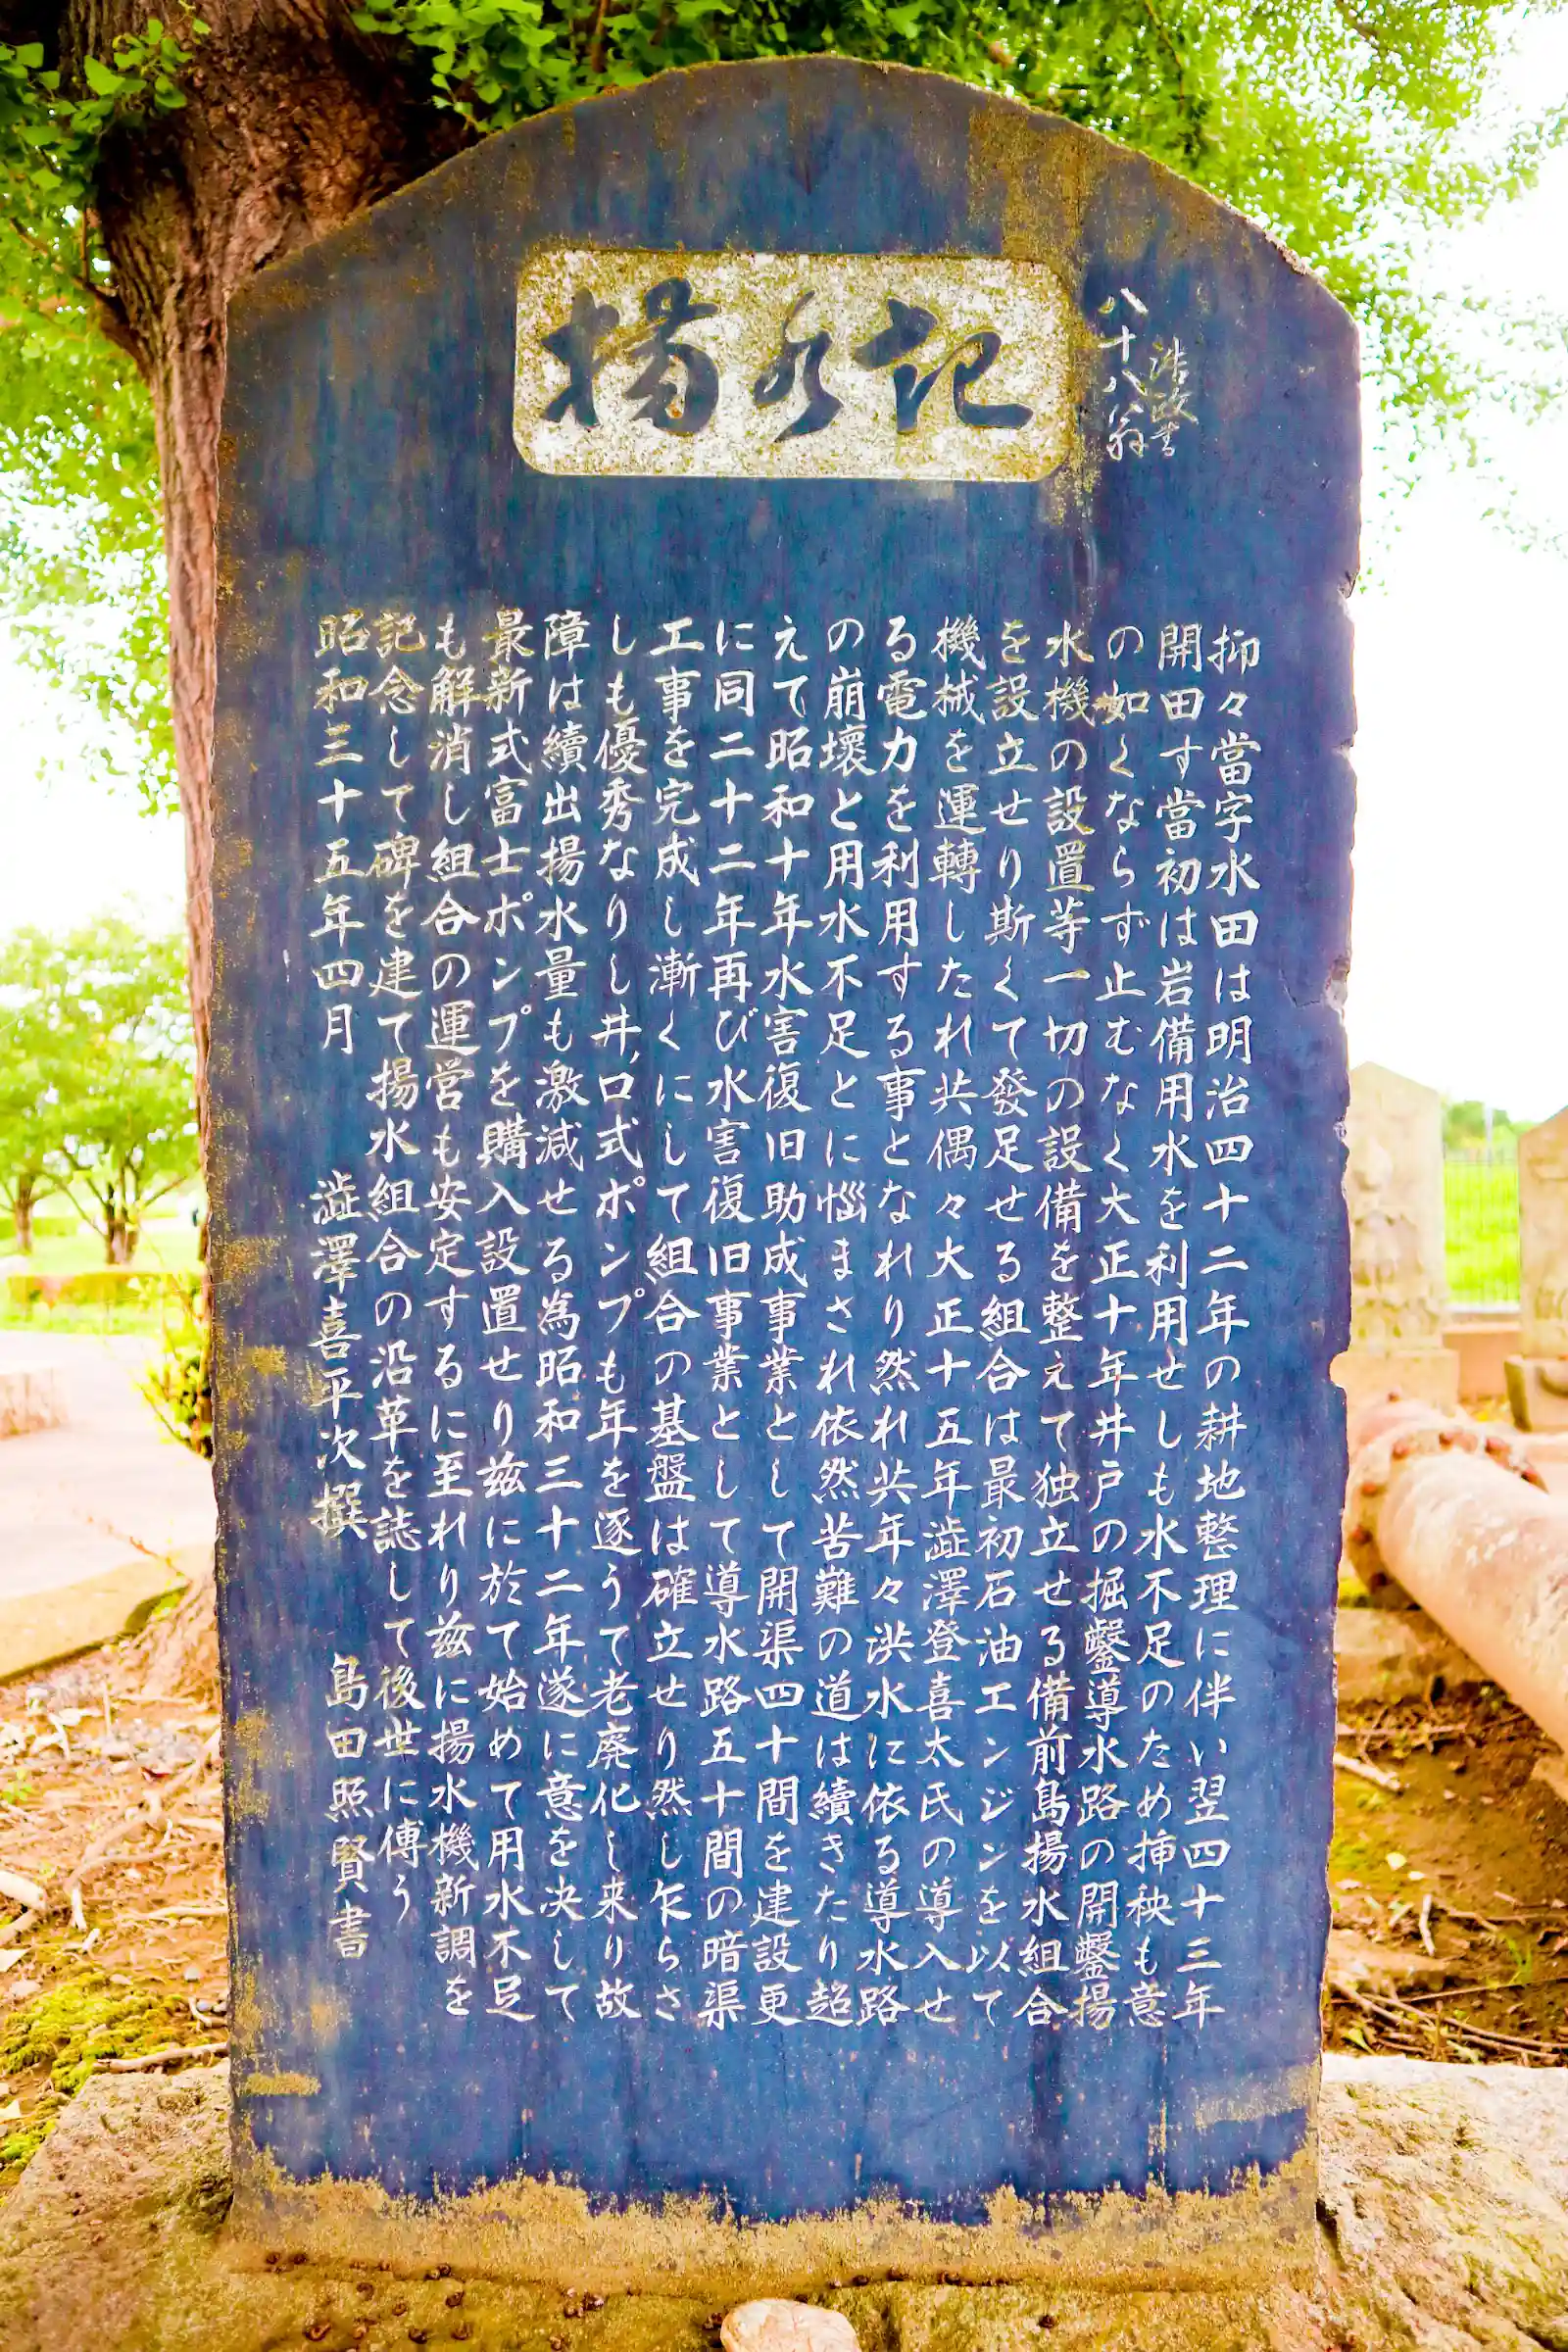 揚水記
八十八翁
抑々當字水田は明治四十二年の耕地整理に伴い翌四十三年
開田す當初は岩備用水を利用せしも水不足のため挿秧も意
の如くならず止むなく大正十年井戸の掘鑿導水路の開鑿揚
水機の設置等一切の設備を整えて独立せる備前島揚水組合
を設立せり斯くて發足せる組合は最初石油エンジンを以て
機械を運轉したれ共偶々大正十五年澁澤登喜太氏の導入せ
る電力を利用する事となれり然れ共年々洪水に依る導水路
の崩壞と用水不足とに惱まされ依然苦難の道は續きたり超
えて昭和十年水害復旧助成事業として開渠四十間を建設更
に同二十二年再び水害復旧事業として導水路五十間の暗渠
工事を完成し漸くにして組合の基盤は確立せり然し乍らさ
しも優秀なりし井口式ポンプも年を逐うて老廃化し来り故
障は續出揚水量も激減せる為昭和三十二年遂に意を决して
最新式富士ポンプを購入設置せり兹に於て始めて用水不足
も解消し組合の運営も安定するに至れり兹に揚水機新調を
記念して碑を建て揚水組合の沿革を誌して後世に傳う
昭和三十五年四月 澁澤喜平次撰 島田照賢書